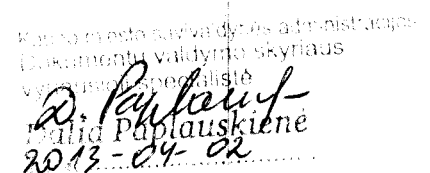 Kauno miesto savivaldybės administracijos
Dokumentų valdymo skyriaus
vyriausioji specialistė
D. Paplausk
Dalia Paplauskienė
2013-04-02